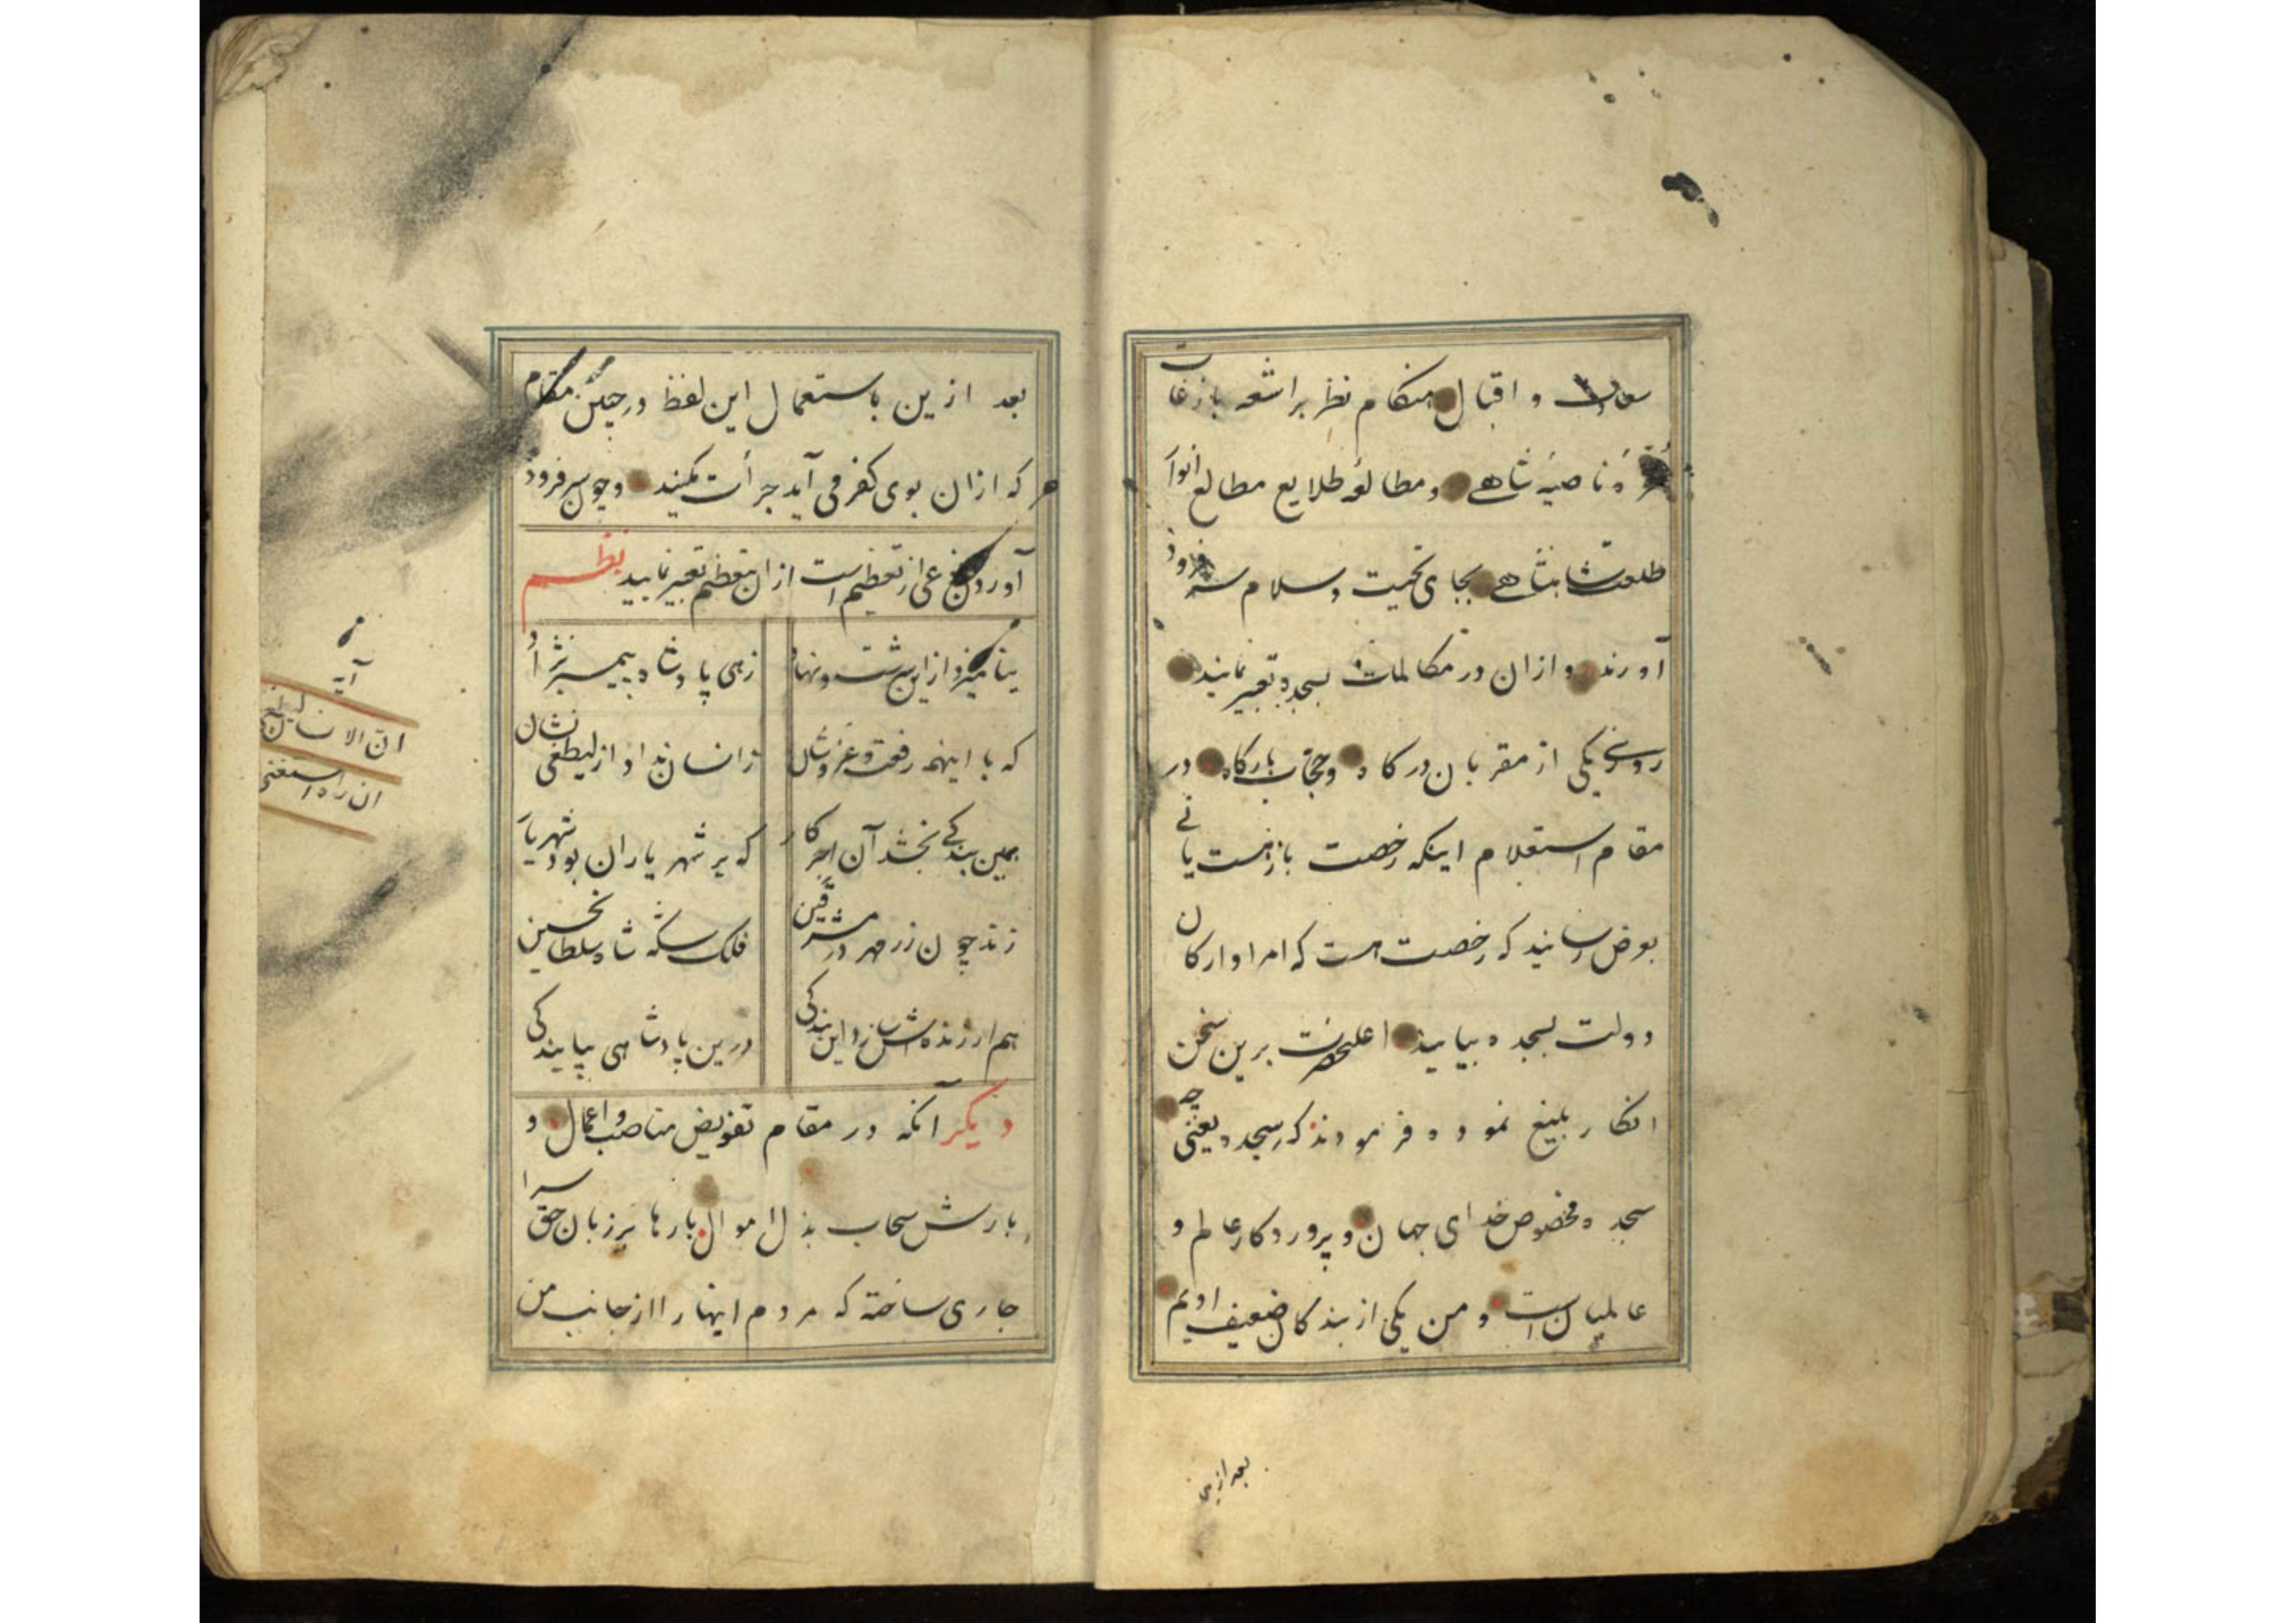 و اقبال هنکام نظر بر اشعه بازغات
ناصیهٔ شاهی و مطالعهٔ طلایع مطالع انوار
طلعت شاهنشاهی بجای تحیت و سلام سر فرود
آورند و ازان در مکالمات بسجده تعبیر نمایند
روزی یکی از مقربان درکاه و حجاب بارکاه در
مقام استعلام اینکه رخصت بازهست یا نی
بعرض رسانید که رخصت هست که امرا و ارکان
دولت بسجده بیایند اعلیحضرت برین سخن
انکار بلیغ نموده فرمودند که سجده یعنی چه
سجده مخصوص خدای جهان و پروردکار عالم و
عالمیان است و من یکی از بندکان ضعیف اویم
بعد ازین
بعد ازین باستعمال این لفظ در چنین مقام
که ازان بوی کفر می آید جرأت مکنید و چون سر فرود
آوردن نوعی از تعظیم است ازان بتعظیم تعبیر نمایید نظم
زهی پادشاه پیمبر نژاد
که با اینهمه رفعت و عز و شان
بهمین بندکی بخشد آن اجر کار
که بر شهریاران بود شهریار
زند چون زر مهر در مشرقین
فلک سکه شاه سلطان حسین
هم ارزنده اش سازد این بندکی
درین پادشاهی بپایندکی
دیکر آنکه در مقام تفویض مناصب و اعمال و
بارش سحاب بذل اموال بارها بر زبان حق سرا
جاری ساخته که مردم اینها را از جانب من
آیه
ان الانسان لیطغی
ان راه استغنی